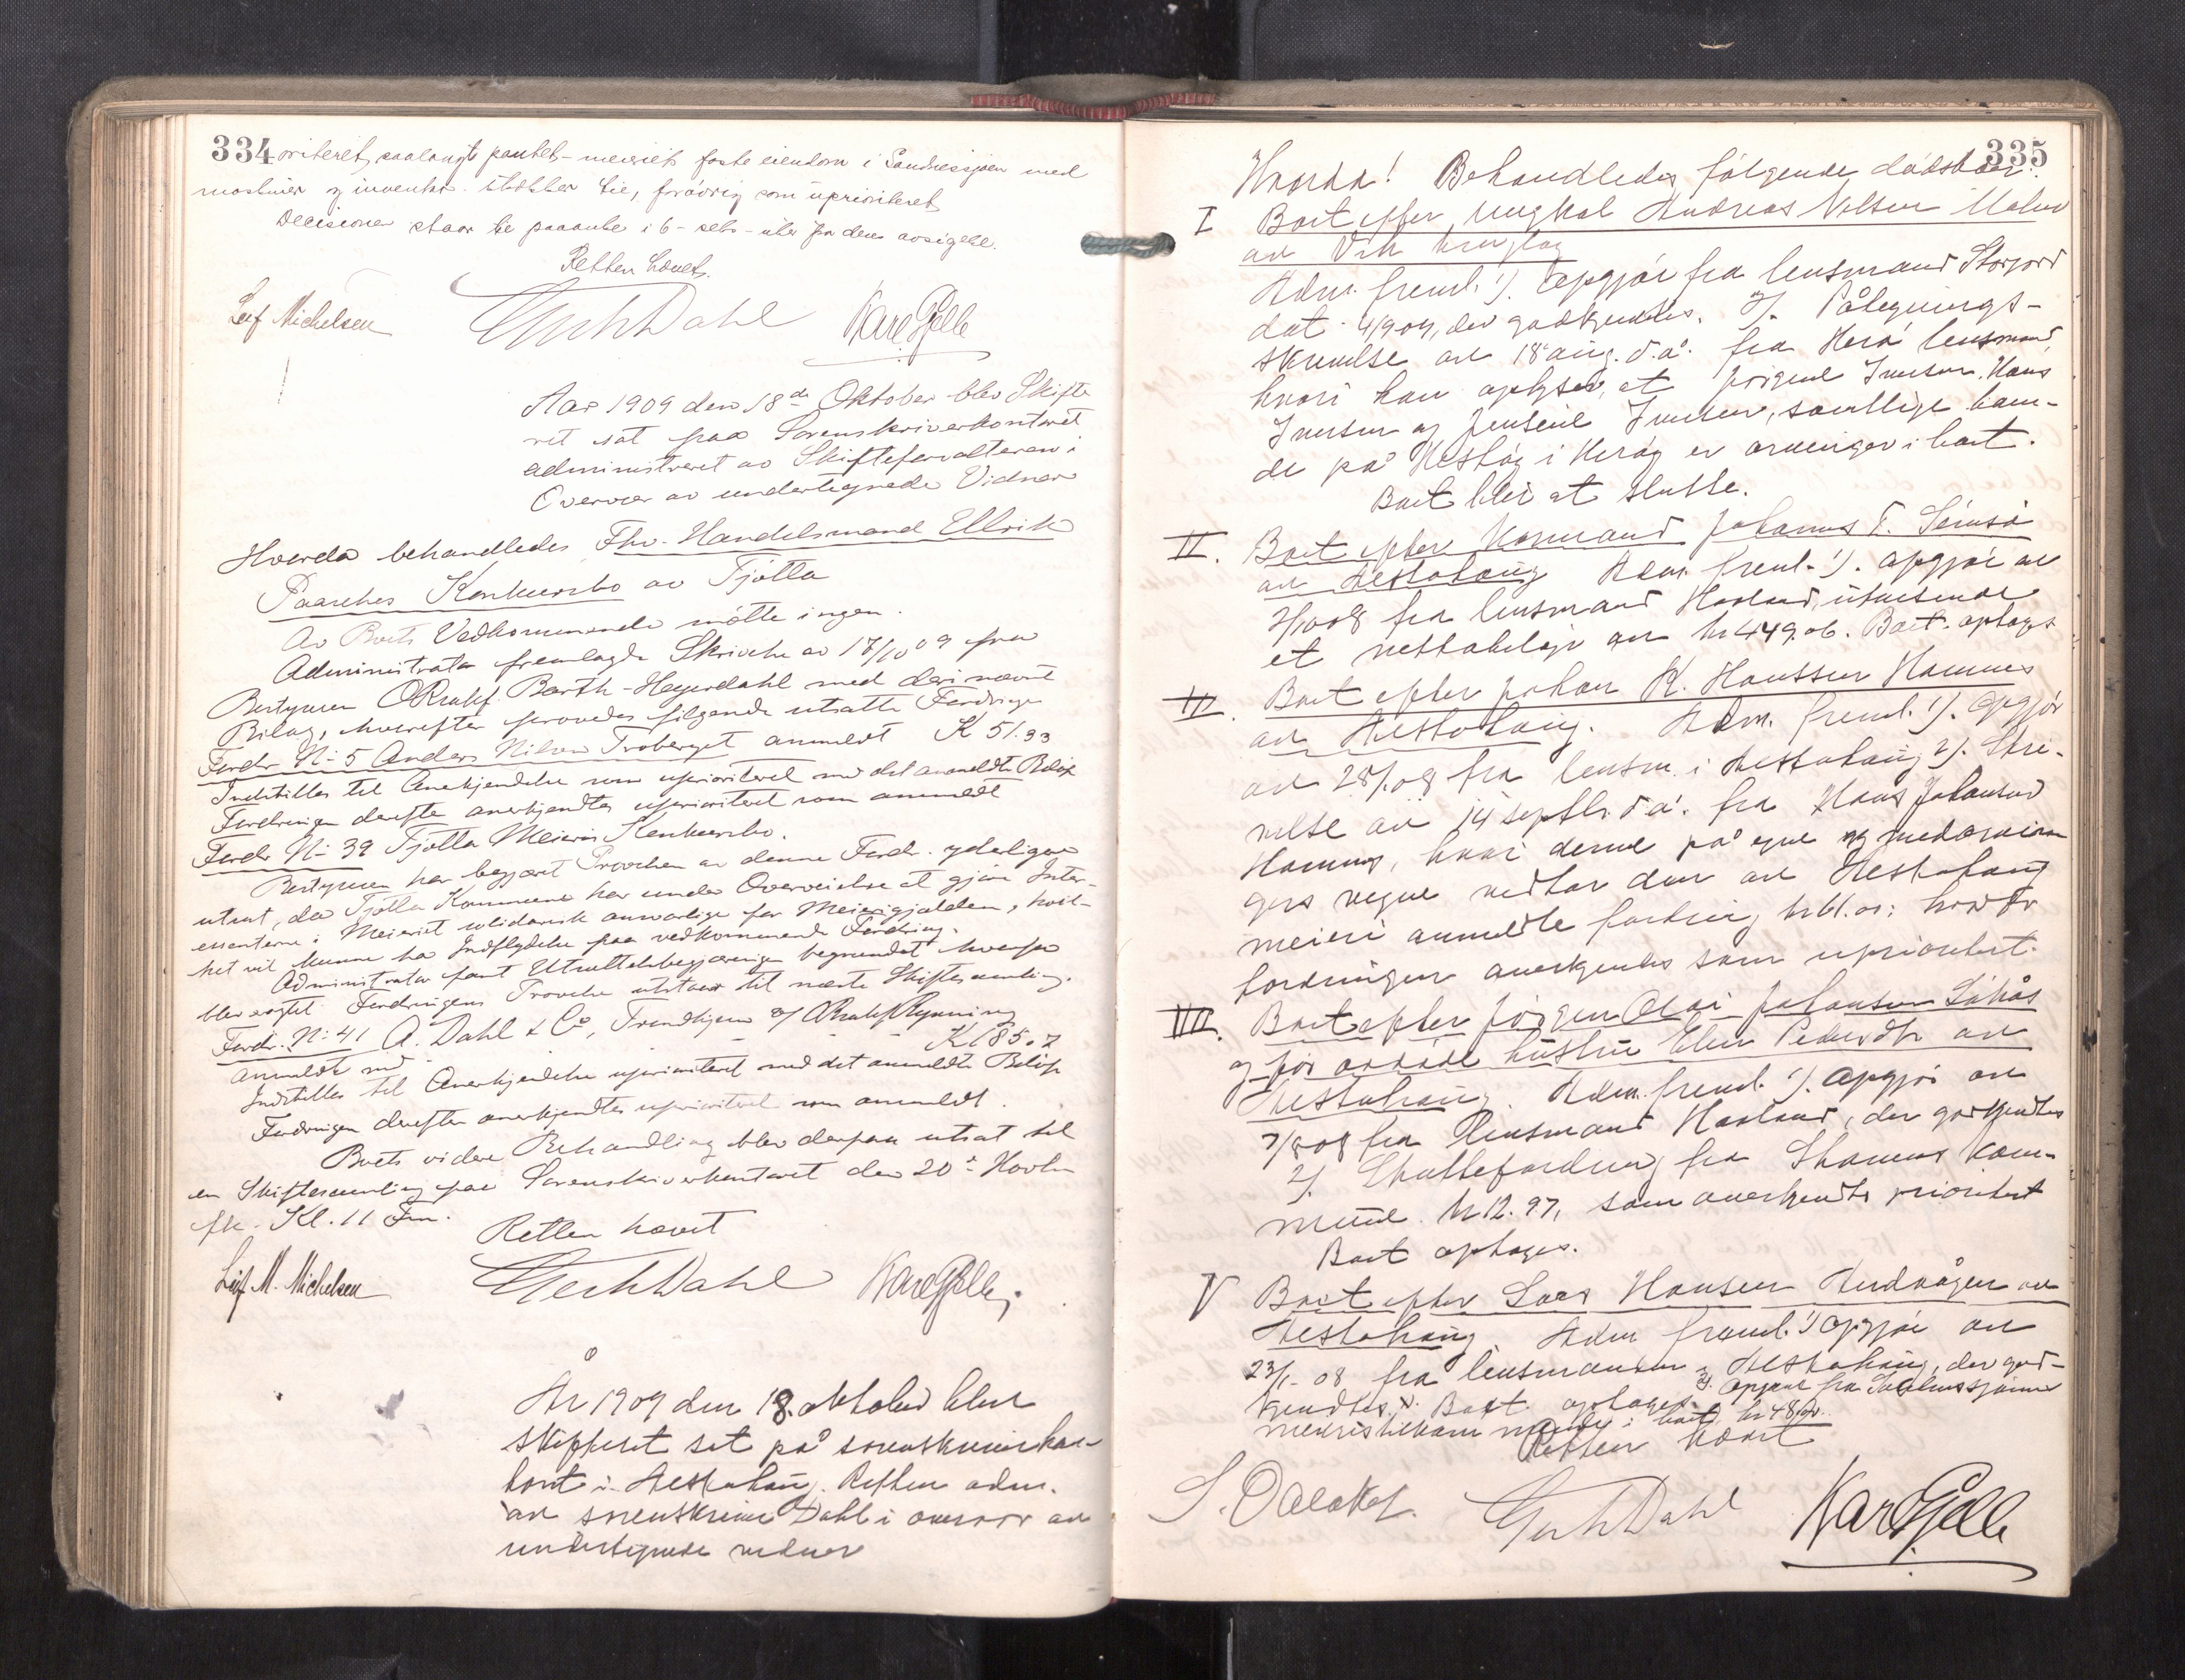 334
oriteret, saalangt pantet - meieriets faste eiendom i Sandnessjøen med
maskiner og inventar strækker til, forøvrig som uprioriteret
Decisionen staar til paaanke i 6 - seks - uker fra dens avsigelse.
Retten hævet.
Leif Michelsen GerhDahl Kare Gjelle
Aar 1909 den 18de Oktober blev Skifte
ret sat paa Sorenskriverkontoret
administreret av Skifteforvalteren i
Overvær av undertegnede Vidner
Hvorda behandledes Fhv. Handelsmand Ellrik
Paasches Konkursbo av Tjøtta
Av Boets Vedkommende møtte ingen.
Administrator fremlagde Skrivelse av 17/10 09 fra
Bestyreren ORsakf. Barth-Heyerdahl med deri nævnt
Bilag, hvorefter prøvedes følgende utsatte Fordringer
Fordr. N: 5 Anders Nilsen Troberget anmeldt K 51.33
Indstilles til Anerkjendelse som uprioriteret med det anmeldte Beløp
Fordringen derefter anerkjendtes uprioriteret som anmeldt
Fordr. N: 39 Tjøtta Meieris Konkursbo.
Bestyreren har begjært Prøvelsen av denne Fordr. yderligere
utsat, da Tjøtta Kommune har under Overveielse at gjøre Inter-
essenterne i Meieriet solidarisk ansvarlige for Meierigjælden, hvil-
ket vil kunne ha Indflydelse paa vedkommende Fordring.
Administrator fant Utsættelsesbegjæringen begrundet hvorfor
blev avgjort: Fordringens Prøvelse utstaar til næste Skiftesamling.
Fordr. N: 41 A. Dahl & Co, Trondhjem v/ ORsakf Rynning
anmeldt med K 185.7
Indstilles til Anerkjendelse uprioriteret med det anmeldte Beløp
Fordringen derefter anerkjendtes uprioriteret som anmeldt.
Boets videre Behandling blev derpaa utsat til
en Skiftesamling paa Sorenskriverkontoret den 20de Novbr
fk. Kl. 11 Fm.
Retten hævet
Leif M. Michelsen GerhDahl Kare Gjelle
År 1909 den 18. oktober blev
skifteret sat på sorenskriverkon-
toret i Alstahaug. Retten adm.
av sorenskriver Dahl i overvær av
undertegnede vidner
335
Hvorda! Behandledes følgende dødsboer:
I Boet efter ungkal Andreas Nilsen
av Vik
Adm. freml. 1). Opgjør fra lensmand Storjord
dat. 4/9 09, der godkjendtes. 2). Pålegnings-
skrivelse av 18 aug. d.å. fra Herø lensmand,
hvori han oplyser, at Jørgine Iversen, Hans
Iversen og Jensine Iversen, samtlige boen-
de på Hestøy i Herøy er arvinger i boet.
Boet blir at slutte.
II. Boet efter Kormand Johannes T.
av Alstahaug Adm. freml. 1). Opgjør av
08 fra lensmand Havland, utvisende
et nettobeløp av kr 449.06. Boet optages
III. Boet efter Johan K. Hanssen Hamnes
av Alstahaug. Adm. freml. 1). Opgjør
av 08 fra lensm. i Alstahaug 2). Skri-
velse av 14 septbr. d.å. fra Hans Johansen
Hamnes, hvori denne på egne og medarvin-
gers vegne vedtar den av Alstahaug
meieri anmeldte fordring kr 61.01; hvorfor
fordringen anerkjendtes som uprioritert.
IIII. Boet efter Jørgen Olai Johansen
og før avdøde hustru Elen Pedersdtr av
Alstahaug. Adm. freml. 1). Opgjør av
7/8 08 fra lensmand Havland, der godkjendtes
2). Skattefordring fra Stamnes kom-
mune kr 12.97, som anerkjendtes prioritert
Boet optages.
V Boet efter Lars Hansen av
Alstahaug. Adm freml. 1) Opgjør av
23/1 - 08 fra lensmanden i Alstahaug, der god-
kjendtes. Boet optages. 2). Opgave fra
i boet kr 48
Retten hævet
GerhDahl Kare Gjelle